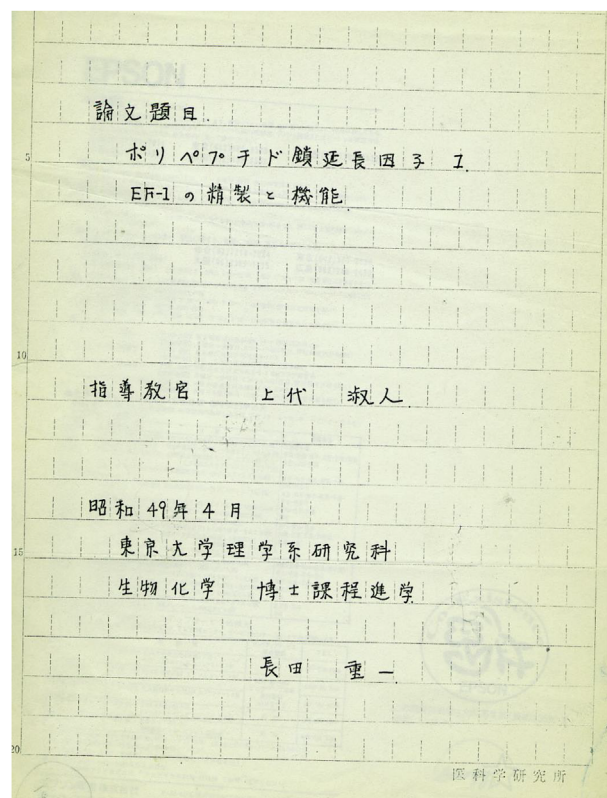 論文題目.
ポリペプチド鎖延長因子 I.
EF-1の精製と機能
指導教官 上代 淑人
昭和49年4月
東京大学理学系研究科
生物化学 博士課程進学
長田 重一
5
10
15
20
医科学研究所